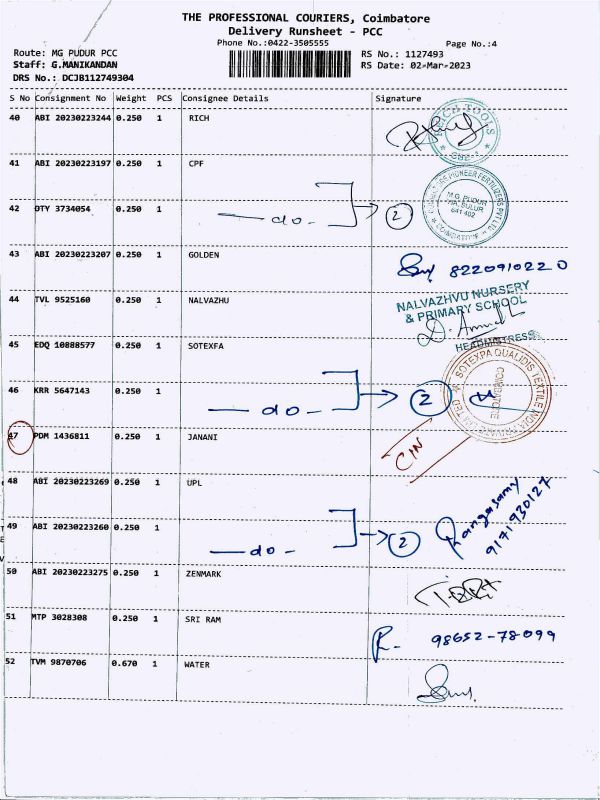 THE PROFESSIONAL COURIERS, Coimbatore
Delivery Runsheet - PCC
Phone No.:0422-3505555
Page No.:4
Route: MG PUDUR PCC
RS No.: 1127493
Staff: G.MANIKANDAN
RS Date: 02-Mar-2023
DRS No.: DCJB112749304
S No Consignment No Weight PCS Consignee Details Signature
40 ABI 20230223244 0.250 1 RICH
TOOLS
CBE-
41 ABI 20230223197 0.250 1 CPF
PIONEER FERTILIZERS PVT LTD
M.G. PUDUR
SULUR
641 402
COIMBATORE
42 DTY 3734054 0.250 1 — do. — 2
43 ABI 20230223207 0.250 1 GOLDEN
8220910220
44 TVL 9525160 0.250 1 NALVAZHU
NALVAZHVU NURSERY
& PRIMARY SCHOOL
HEADMISTRESS
45 EDQ 10888577 0.250 1 SOTEXFA
SOTEXPA QUALIDIS TEXTILE INDIA PRIVATE LIMITED
COIMBATORE
46 KRR 5647143 0.250 1 — do — 2
47 PDM 1436811 0.250 1 JANANI
CIN
48 ABI 20230223269 0.250 1 UPL
Rangasamy
9171930127
49 ABI 20230223260 0.250 1 — do — 2
50 ABI 20230223275 0.250 1 ZENMARK
51 MTP 3028308 0.250 1 SRI RAM
98652-78099
52 TVM 9870706 0.670 1 WATER